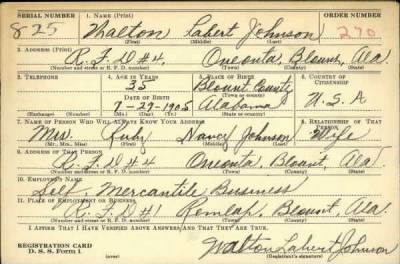 SERIAL NUMBER 1. NAME (Print) ORDER NUMBER
825 Walton Labert Johnson 270
(First) (Middle) (Last)
2. ADDRESS (Print)
R.F.D #4 Oneonta, Blount, Ala.
(Number and street or R. F. D. number) (Town) (County) (State)
3. TELEPHONE 4. AGE IN YEARS 5. PLACE OF BIRTH 6. COUNTRY OF CITIZENSHIP
35 Blount County
DATE OF BIRTH (Town or county)
7-29-1905 Alabama U.S.A
(Exchange) (Number) (Mo.) (Day) (Yr.) (State or country)
7. NAME OF PERSON WHO WILL ALWAYS KNOW YOUR ADDRESS 8. RELATIONSHIP OF THAT PERSON
Mrs. Ruby Nancy Johnson Wife
(Mr., Mrs., Miss) (First) (Middle) (Last)
9. ADDRESS OF THAT PERSON
R.F.D #4 Oneonta, Blount, Ala.
(Number and street or R. F. D. number) (Town) (County) (State)
10. EMPLOYER'S NAME
Self, Mercantile Business
11. PLACE OF EMPLOYMENT OR BUSINESS
R.F.D #1 Remlap, Blount, Ala.
(Number and street or R. F. D. number) (Town) (County) (State)
I AFFIRM THAT I HAVE VERIFIED ABOVE ANSWERS AND THAT THEY ARE TRUE.
REGISTRATION CARD
D. S. S. Form 1 (over) Walton Labert Johnson
(Registrant's signature)